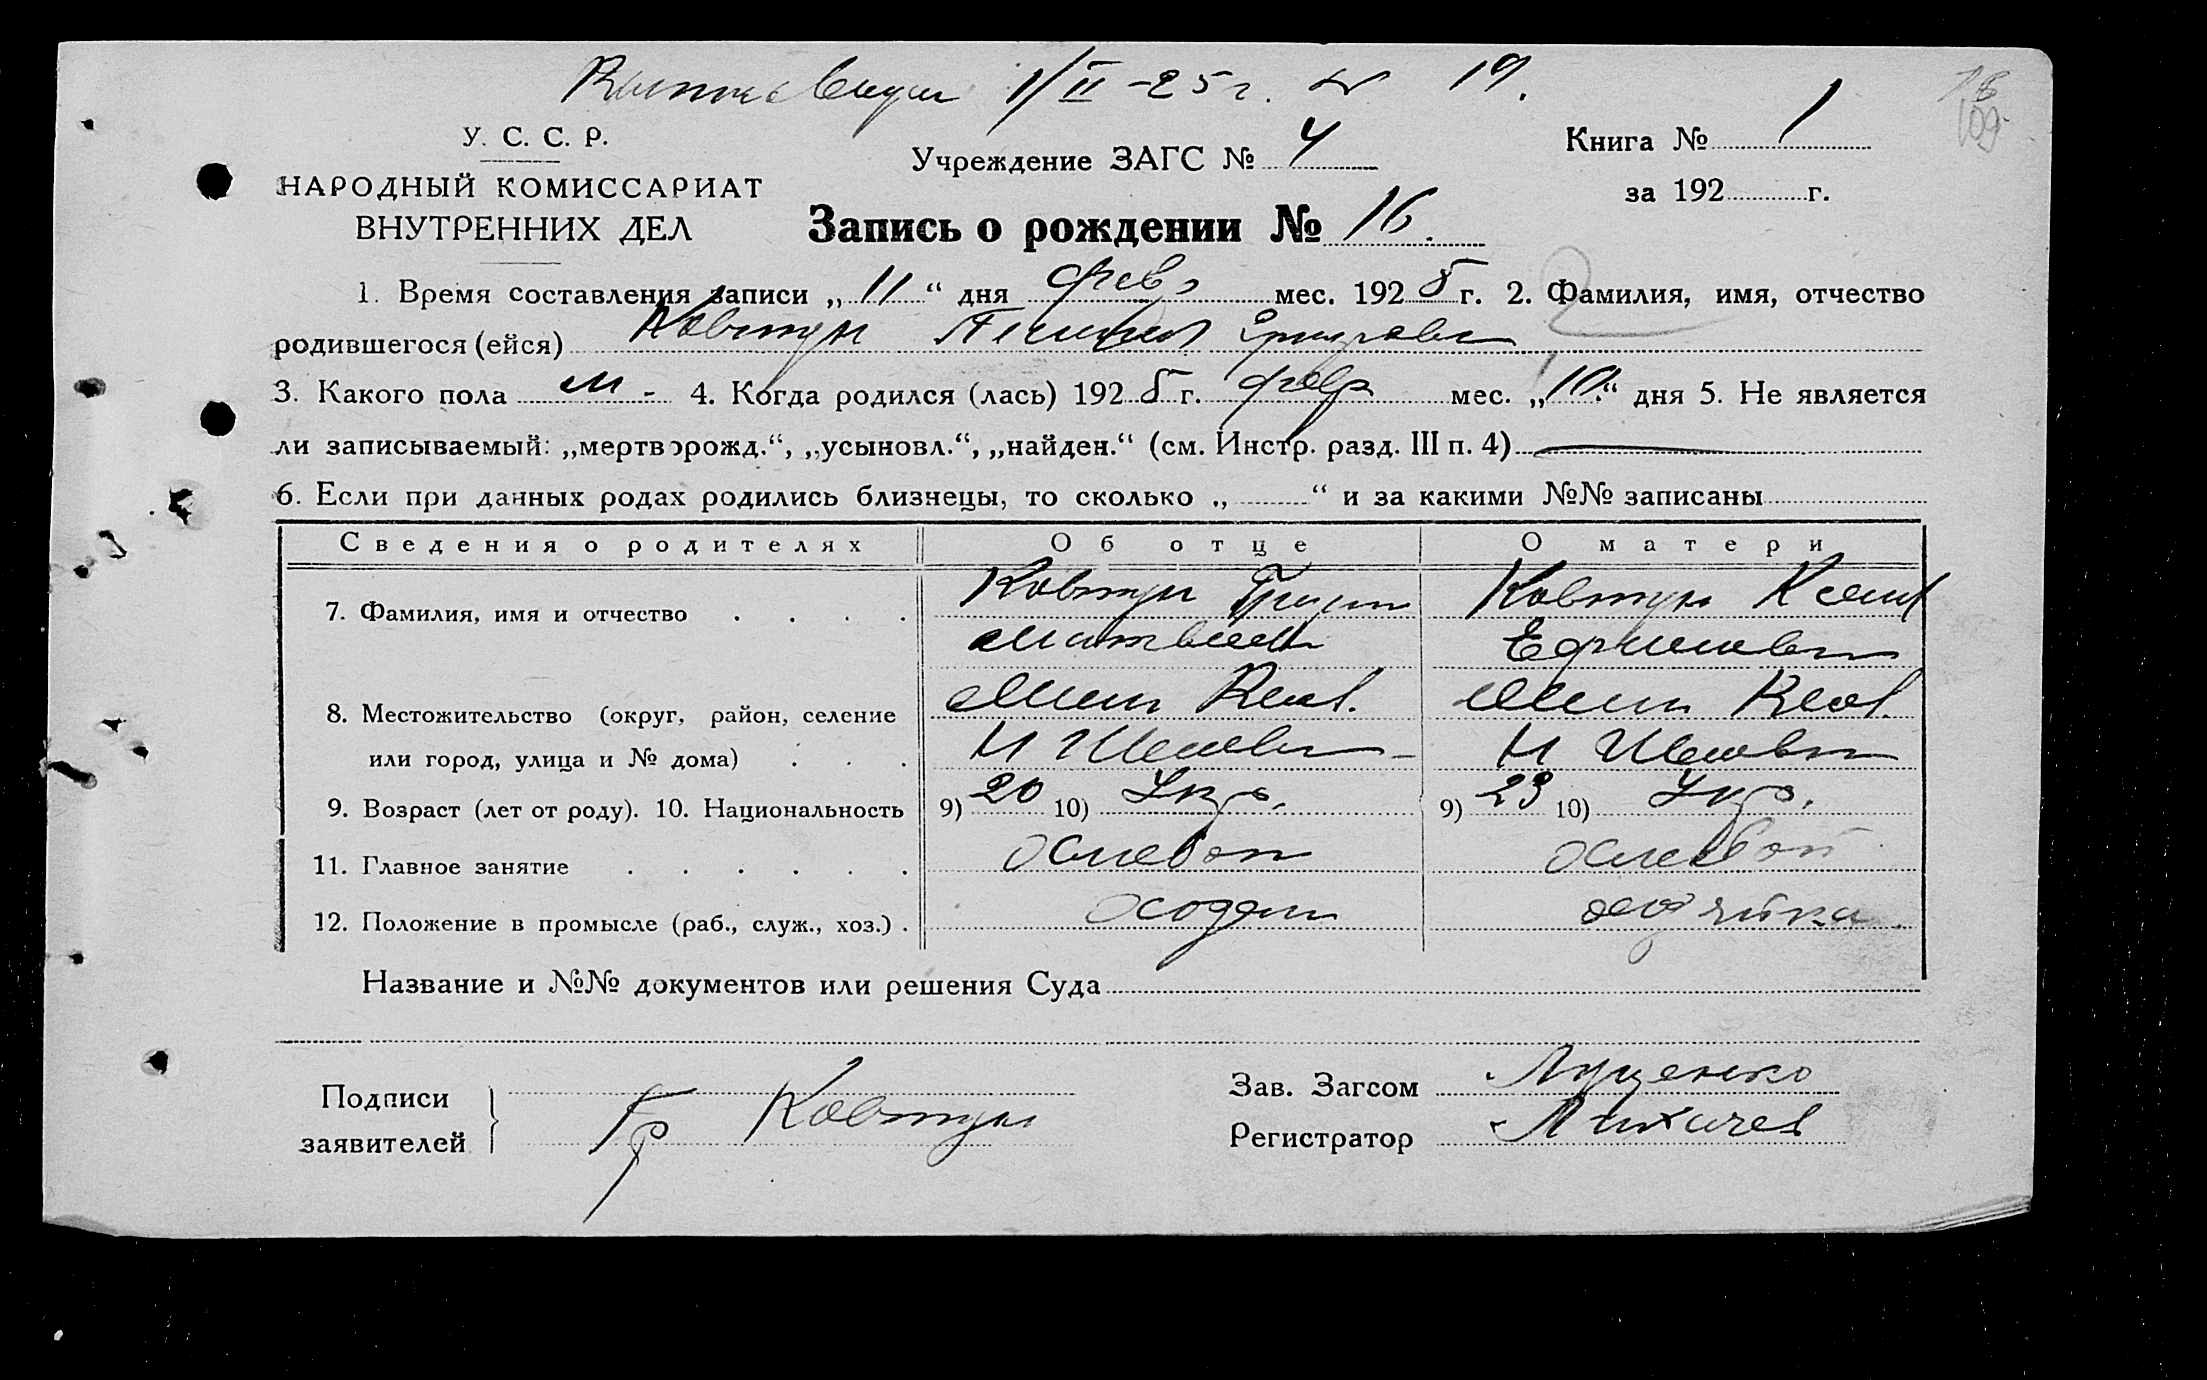 1/II-25 г. № 19.
У. С. С. Р.
НАРОДНЫЙ КОМИССАРИАТ
ВНУТРЕННИХ ДЕЛ
Учреждение ЗАГС № 4
Книга № 1
за 192 г.
109
Запись о рождении № 16.
1. Время составления записи „11“ дня февр мес. 1925 г. 2. Фамилия, имя, отчество
родившегося (ейся) Ковтун
3. Какого пола м - 4. Когда родился (лась) 1925 г. февр мес. „10“ дня 5. Не является
ли записываемый: „мертворожд.“, „усыновл.“, „найден.“ (см. Инстр. разд. III п. 4)
6. Если при данных родах родились близнецы, то сколько „ “ и за какими №№ записаны
Сведения о родителях Об отце О матери
7. Фамилия, имя и отчество . . . . Ковтун Григор Ковтун Ксения
Матвеев Ефимовн
8. Местожительство (округ, район, селение
или город, улица и № дома) . . .
9. Возраст (лет от роду). 10. Национальность 9) 20 10) Укр. 9) 23 10) Укр.
11. Главное занятие . . . . . . Хлебоп Хлебоп
12. Положение в промысле (раб., служ., хоз.) . хозяйка
Название и №№ документов или решения Суда
Подписи
заявителей
Гр Ковтун
Зав. Загсом Луценко
Регистратор Лихачев